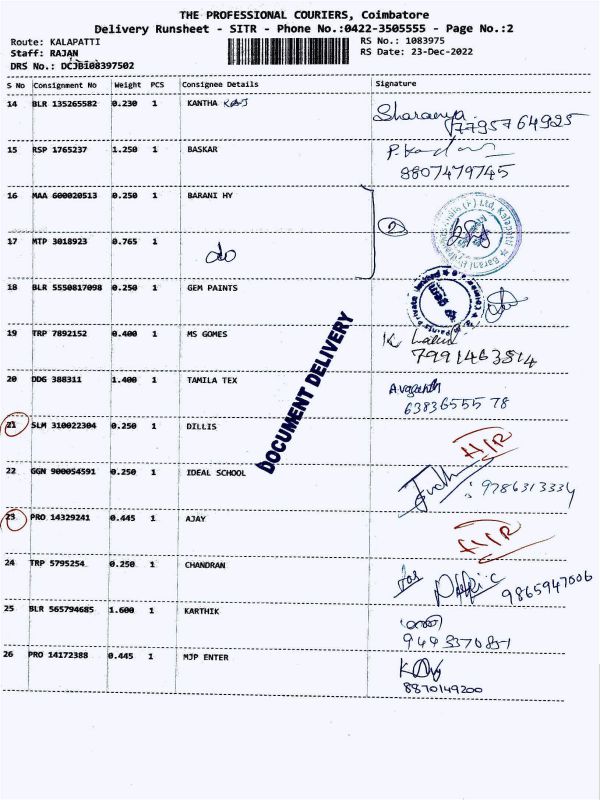 THE PROFESSIONAL COURIERS, Coimbatore
Delivery Runsheet - SITR - Phone No.:0422-3505555 - Page No.:2
Route: KALAPATTI
Staff: RAJAN
DRS No.: DCJB108397502
RS No.: 1083975
RS Date: 23-Dec-2022
S No Consignment No Weight PCS Consignee Details Signature
14 BLR 135265582 0.230 1 KANTHA Sharanya
7795764925
15 RSP 1765237 1.250 1 BASKAR
8807479745
16 MAA 600020513 0.250 1 BARANI HY
2
17 MTP 3018923 0.765 1
do
18 BLR 5550817098 0.250 1 GEM PAINTS
19 TRP 7892152 0.400 1 MS GOMES
7991463814
DOCUMENT DELIVERY
20 DDG 388311 1.400 1 TAMILA TEX
6383655578
21 SLM 310022304 0.250 1 DILLIS
22 GGN 900054591 0.250 1 IDEAL SCHOOL
: 9786313334
23 PRO 14329241 0.445 1 AJAY
24 TRP 5795254 0.250 1 CHANDRAN
9865947006
25 BLR 565794685 1.600 1 KARTHIK
26 PRO 14172388 0.445 1 MJP ENTER
8870149200